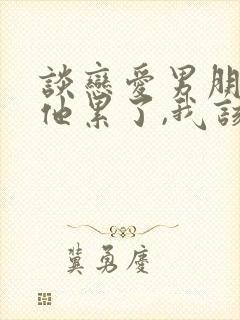 談戀愛男朋
他累了,我該
冀勇慶